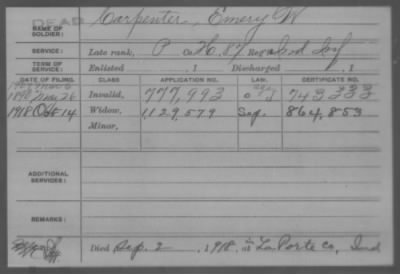 DEAD
NAME OF SOLDIER: Carpenter, Emery W
SERVICE: Late rank, P Co. H, 87 Reg't Ind Inf
TERM OF SERVICE: Enlisted , 1 Discharged , 1
DATE OF FILING. CLASS APPLICATION NO. LAW. CERTIFICATE NO.
1890 Invalid, 777,993 743333
1918 Oct 14 Widow, 1,129,579 Sep. 864,853
Minor,
ADDITIONAL SERVICES:
REMARKS:
Died Sep. 2, 1918, at La Porte Co, Ind